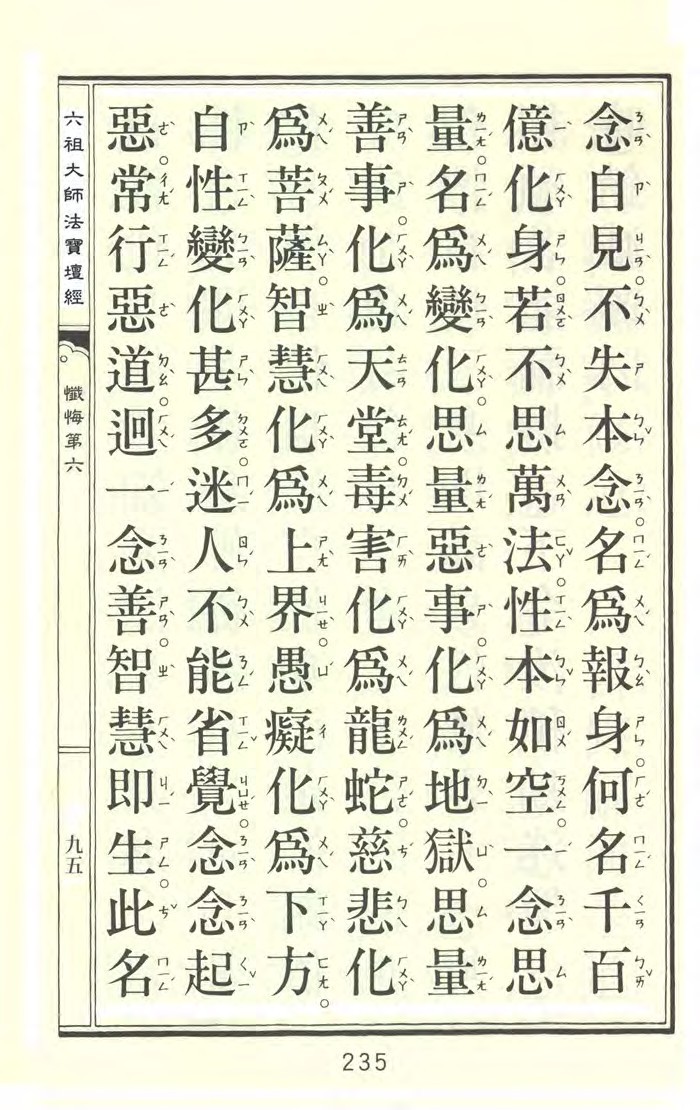 念自見不失本念。名為報身。何名千百
億化身。若不思萬法。性本如空。一念思
量。名為變化。思量惡事。化為地獄。思量
善事。化為天堂。毒害化為龍蛇。慈悲化
為菩薩。智慧化為上界。愚癡化為下方。
自性變化甚多。迷人不能省覺。念念起
惡。常行惡道。迴一念善。智慧即生。此名
六祖大師法寶壇經
懺悔第六
九五
235